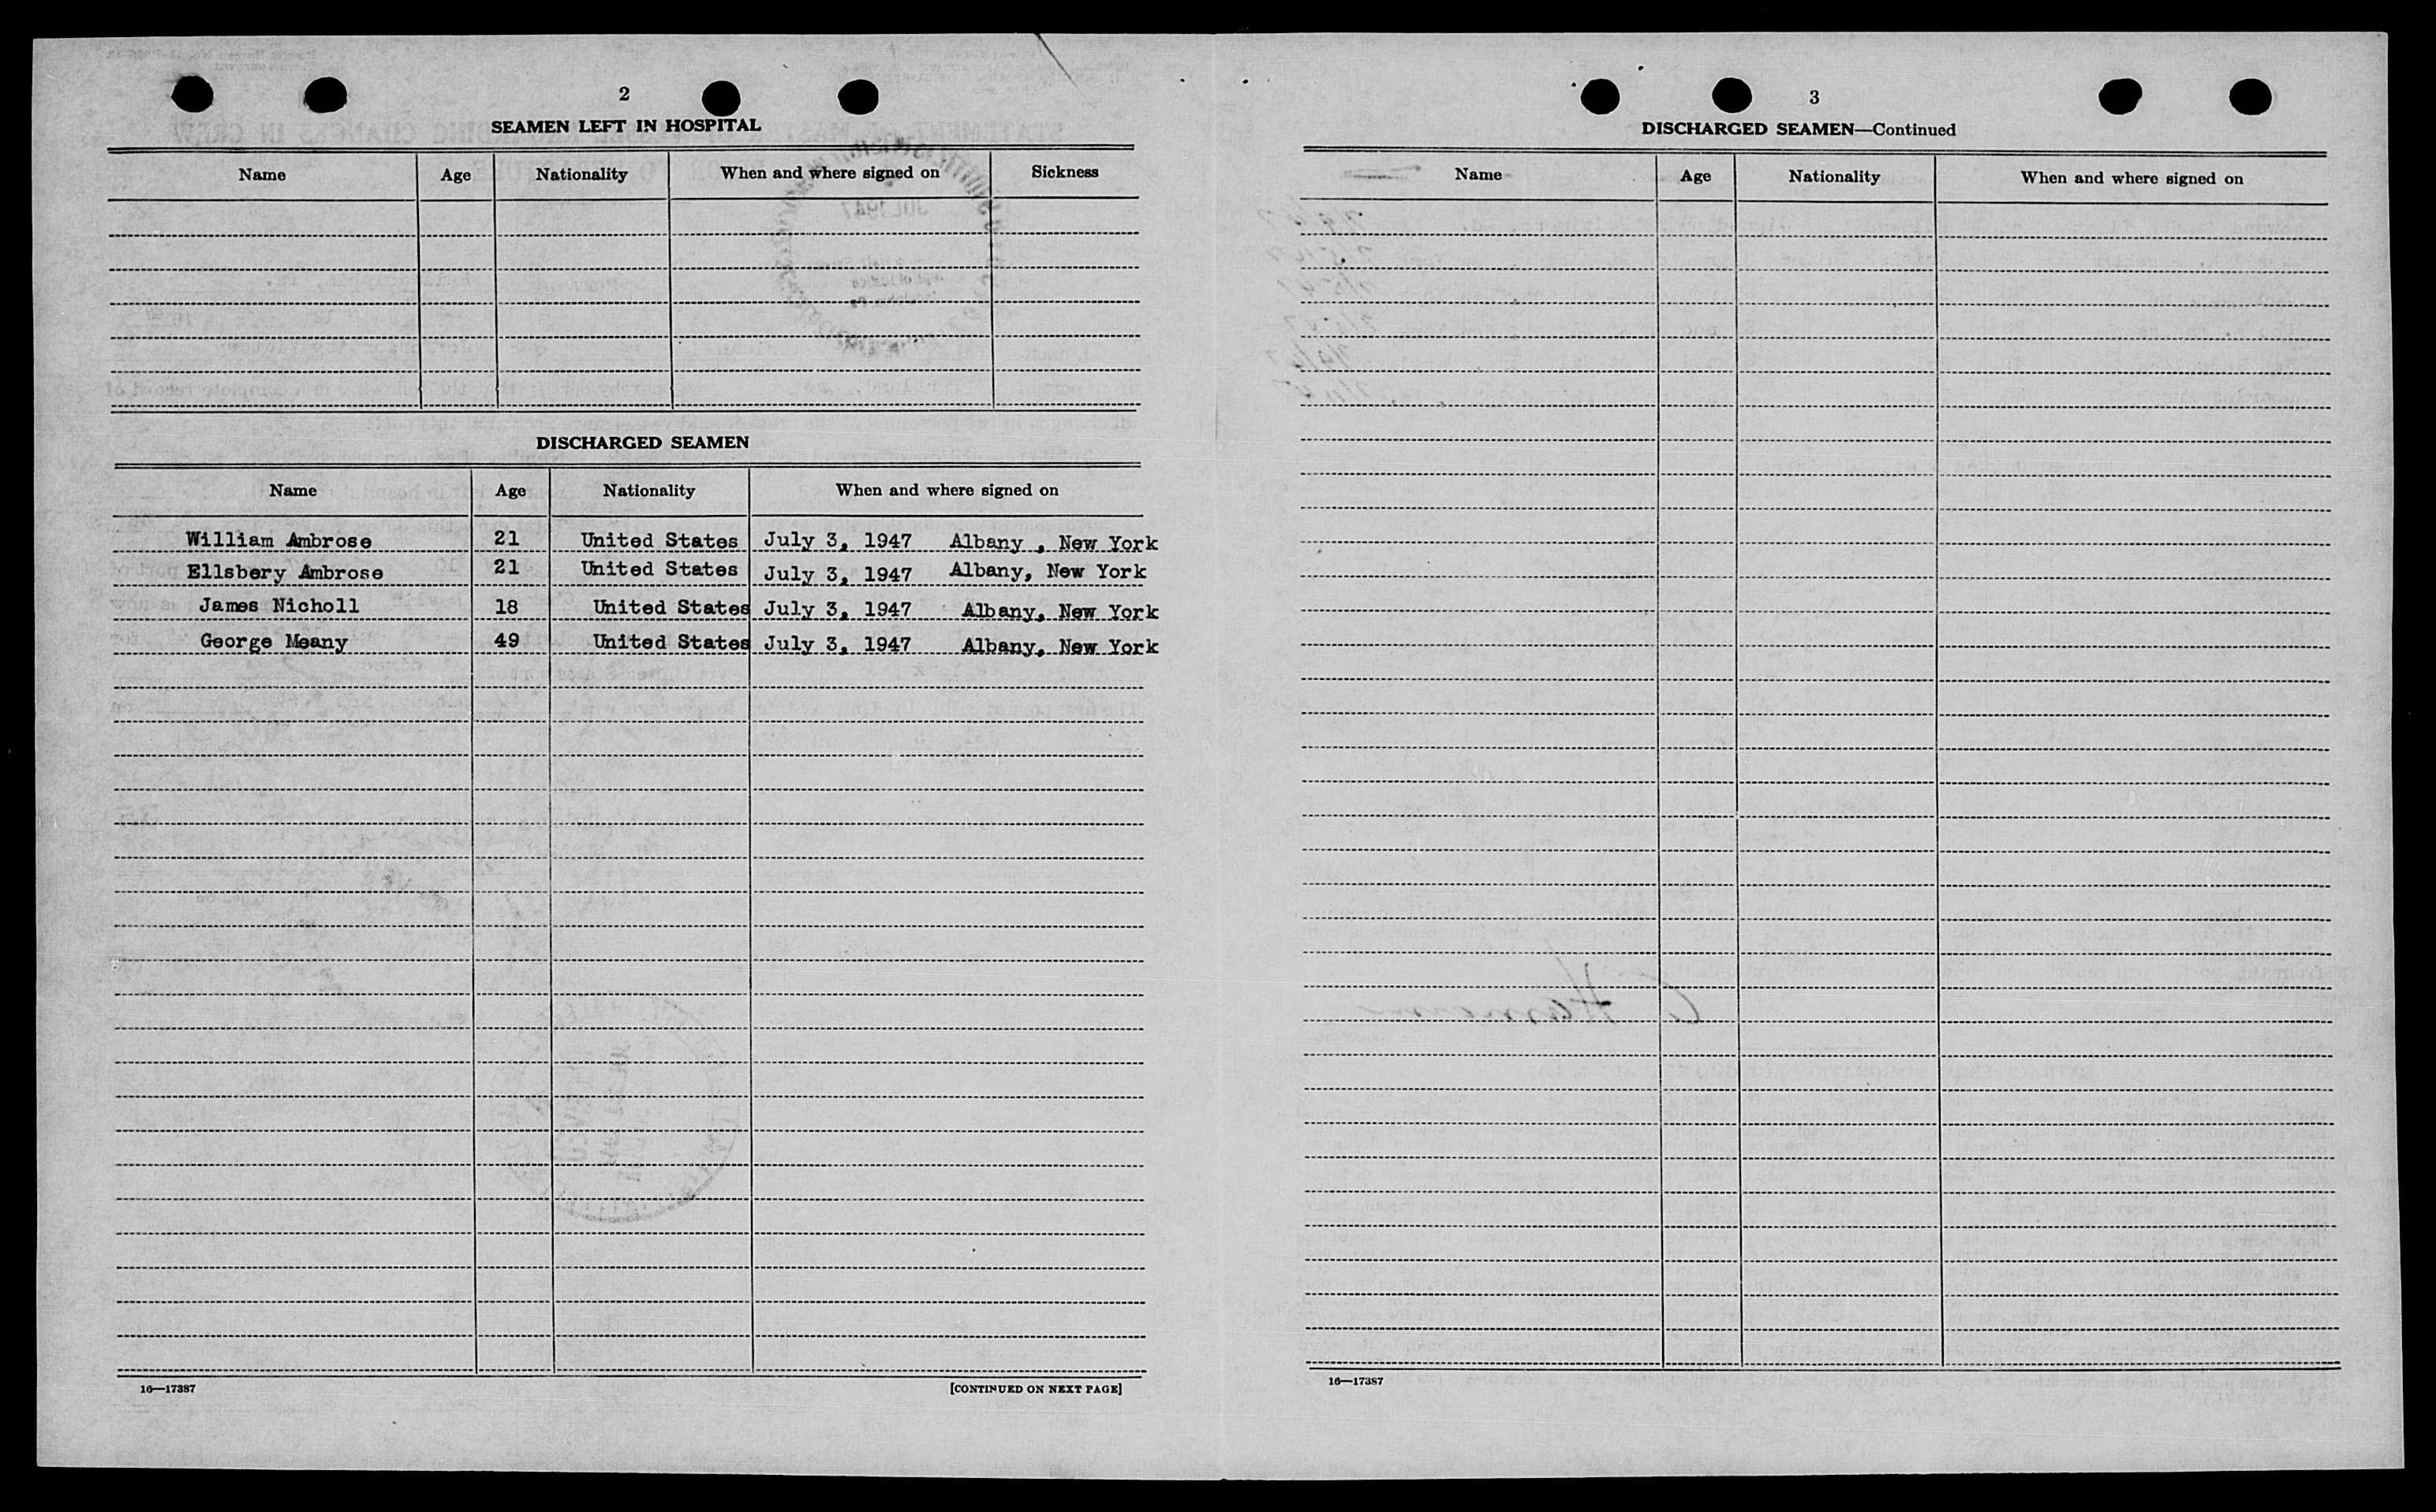 2
SEAMEN LEFT IN HOSPITAL
Name Age Nationality When and where signed on Sickness
DISCHARGED SEAMEN
Name Age Nationality When and where signed on
William Ambrose 21 United States July 3, 1947 Albany , New York
Ellsbery Ambrose 21 United States July 3, 1947 Albany, New York
James Nicholl 18 United States July 3, 1947 Albany, New York
George Meany 49 United States July 3, 1947 Albany, New York
16—17387 [CONTINUED ON NEXT PAGE]
3
DISCHARGED SEAMEN—Continued
Name Age Nationality When and where signed on
16—17387